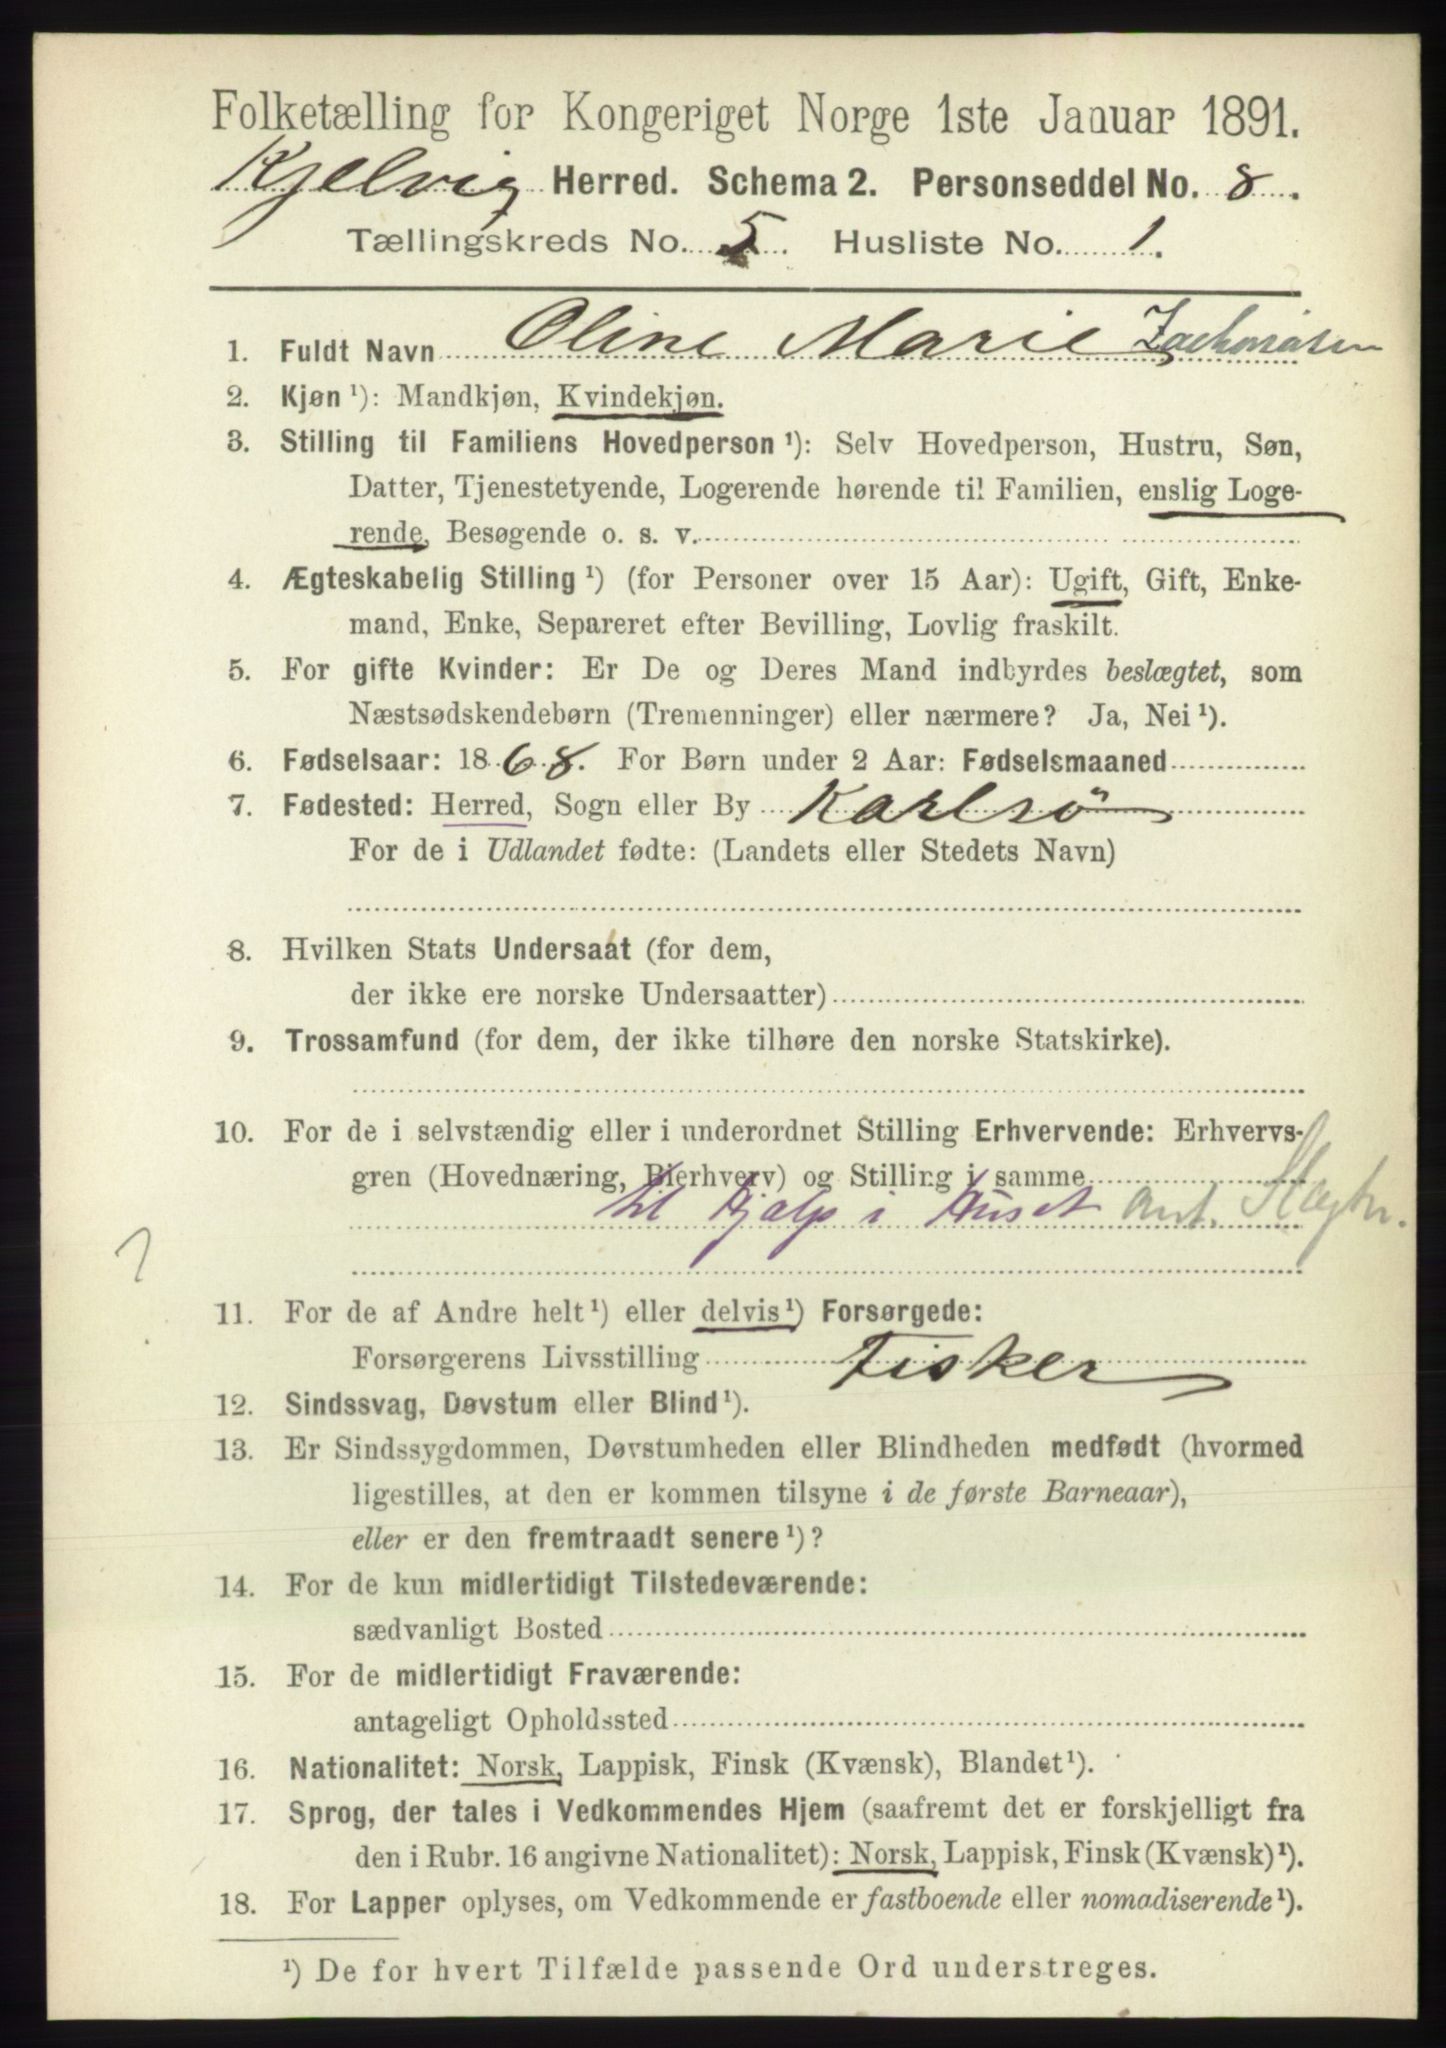 Folketælling for Kongeriget Norge 1ste Januar 1891.
Kjelvig Herred. Schema 2. Personseddel No. 8.
Tællingskreds No. 5. Husliste No. 1.
1. Fuldt Navn Oline Marie Zachariasen
2. Kjøn ¹): Mandkjøn, Kvindekjøn.
3. Stilling til Familiens Hovedperson ¹): Selv Hovedperson, Hustru, Søn,
Datter, Tjenestetyende, Logerende hørende til Familien, enslig Loge-
rende, Besøgende o. s. v.
4. Ægteskabelig Stilling ¹) (for Personer over 15 Aar): Ugift, Gift, Enke-
mand, Enke, Separeret efter Bevilling, Lovlig fraskilt.
5. For gifte Kvinder: Er De og Deres Mand indbyrdes beslægtet, som
Næstsødskendebørn (Tremenninger) eller nærmere? Ja, Nei ¹).
6. Fødselsaar: 1868. For Børn under 2 Aar: Fødselsmaaned
7. Fødested: Herred, Sogn eller By Karlsø
For de i Udlandet fødte: (Landets eller Stedets Navn)
8. Hvilken Stats Undersaat (for dem,
der ikke ere norske Undersaatter)
9. Trossamfund (for dem, der ikke tilhøre den norske Statskirke).
10. For de i selvstændig eller i underordnet Stilling Erhvervende: Erhvervs-
gren (Hovednæring, Bierhverv) og Stilling i samme
til Hjælp i Huset ant.
?
11. For de af Andre helt ¹) eller delvis ¹) Forsørgede:
Forsørgerens Livsstilling Fisker
12. Sindssvag, Døvstum eller Blind ¹).
13. Er Sindssygdommen, Døvstumheden eller Blindheden medfødt (hvormed
ligestilles, at den er kommen tilsyne i de første Barneaar),
eller er den fremtraadt senere ¹)?
14. For de kun midlertidigt Tilstedeværende:
sædvanligt Bosted
15. For de midlertidigt Fraværende:
antageligt Opholdssted
16. Nationalitet: Norsk, Lappisk, Finsk (Kvænsk), Blandet ¹).
17. Sprog, der tales i Vedkommendes Hjem (saafremt det er forskjelligt fra
den i Rubr. 16 angivne Nationalitet): Norsk, Lappisk, Finsk (Kvænsk) ¹).
18. For Lapper oplyses, om Vedkommende er fastboende eller nomadiserende ¹).
¹) De for hvert Tilfælde passende Ord understreges.